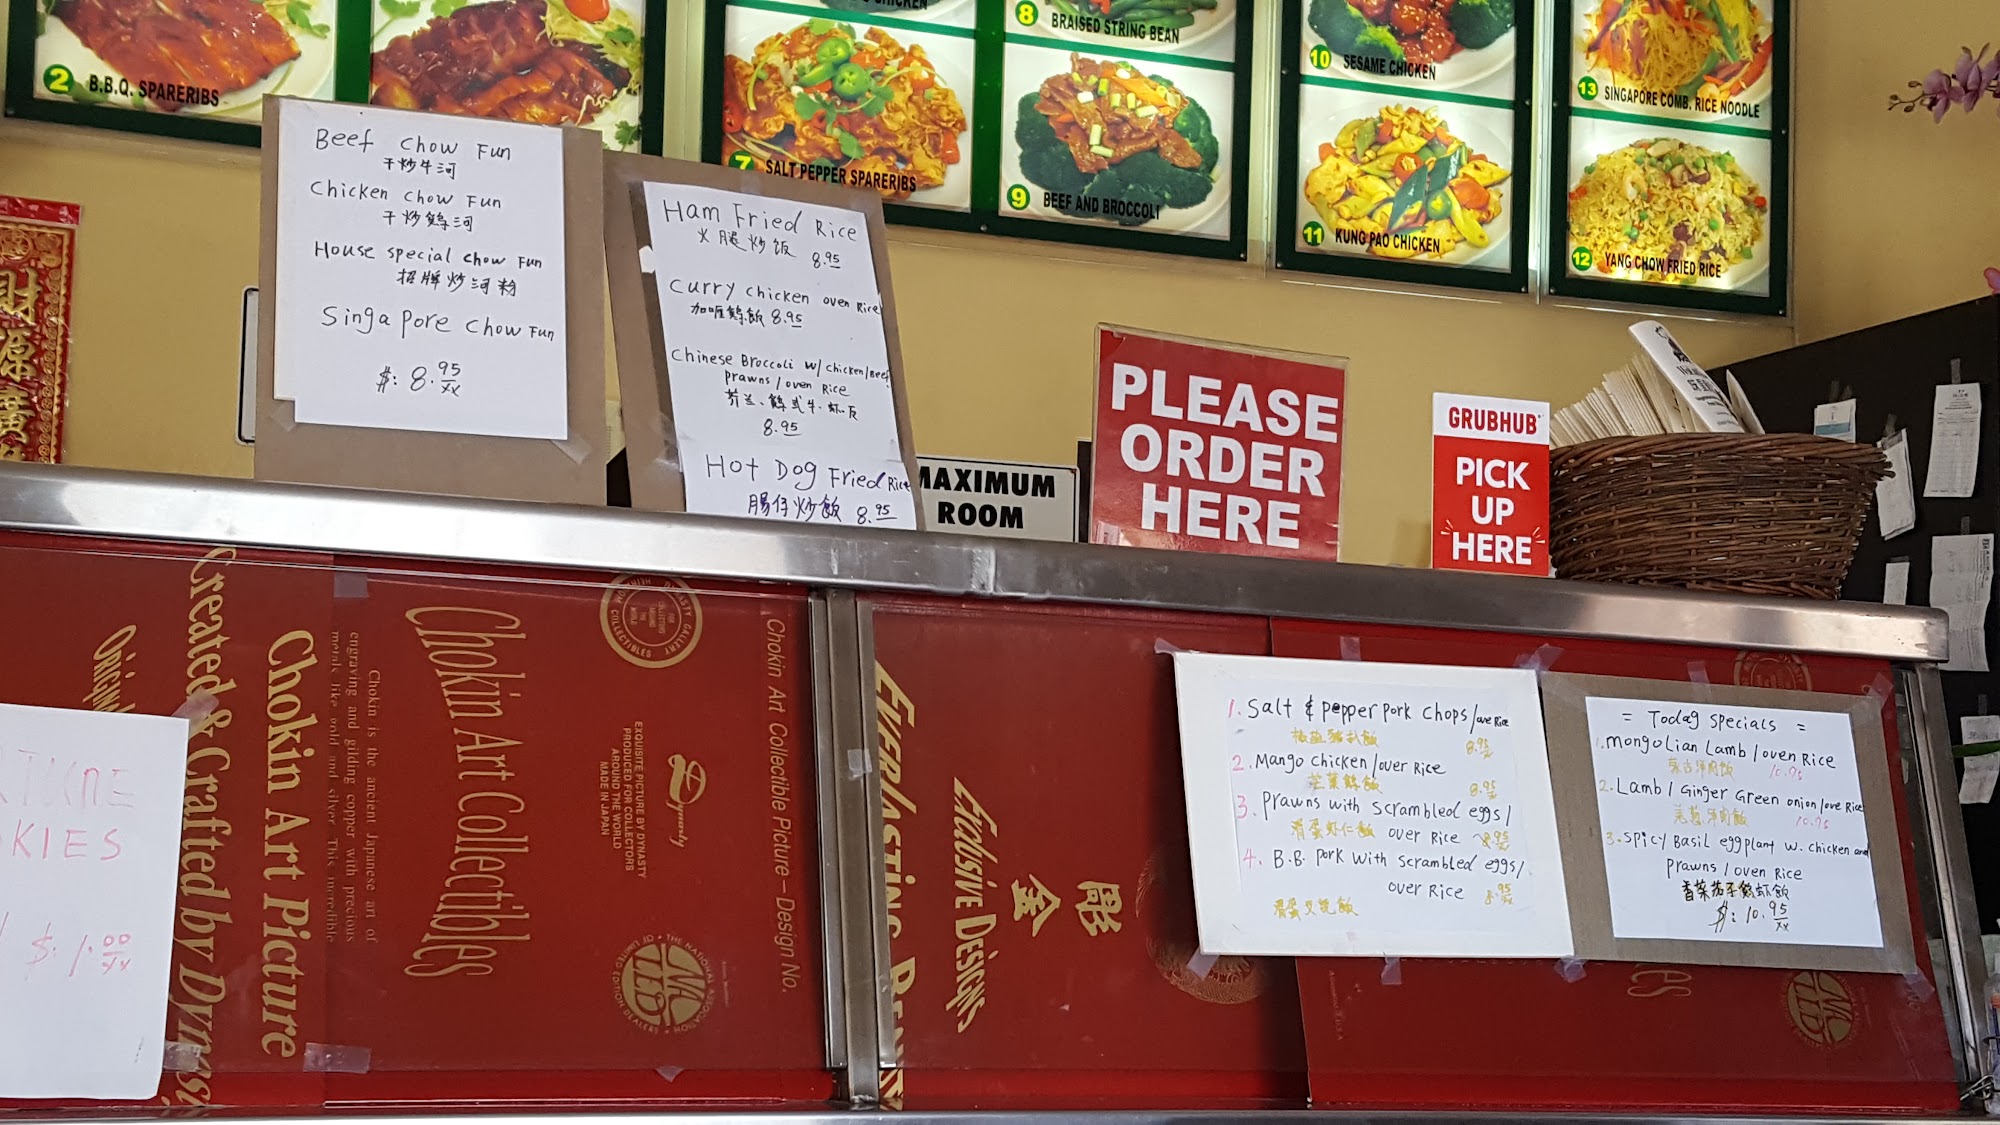 2 B.B.Q. SPARERIBS
7 SALT PEPPER SPARERIBS
8 BRAISED STRING BEAN
9 BEEF AND BROCCOLI
10 SESAME CHICKEN
11 KUNG PAO CHICKEN
13 SINGAPORE COMB. RICE NOODLE
12 YANG CHOW FRIED RICE
Beef Chow Fun
干炒牛河
Chicken Chow Fun
干炒鷄河
House special chow Fun
招牌炒河粉
Singapore Chow Fun
$: 8.95
Ham Fried Rice
火腿炒饭 8.95
Curry chicken over Rice
8.95
Chinese Broccoli w/ chicken/Beef
prawns / over Rice
8.95
Hot Dog Fried Rice
腸仔炒飯 8.95
MAXIMUM
ROOM
PLEASE
ORDER
HERE
GRUBHUB
PICK
UP
HERE
財
源
廣
Created & Crafted by
Chokin Art Picture
Chokin is the ancient Japanese art of
engraving and gilding copper with precious
metals like gold and silver. This incredible
Chokin Art Collectibles
DYNASTY GALLERY
HEIRLOOM COLLECTIBLES
EXQUISITE PICTURE BY DYNASTY
PRODUCED FOR COLLECTORS
AROUND THE WORLD
MADE IN JAPAN
Dynasty
Chokin Art Collectible Picture – Design No.
THE NATIONAL ASSOCIATION
OF LIMITED EDITION DEALERS
EVERLASTING
Exclusive DESIGNS
彫
金
KIES
$: 1.00
1. Salt & pepper pork chops / over Rice
8.95
2. Mango chicken / over Rice
芒菓鷄飯 8.95
3. prawns with scrambled eggs /
滑蛋虾仁飯 over Rice 8.95
4. B.B. pork with scrambled eggs /
over Rice 8.95
滑蛋叉烧飯
= Today specials =
1. Mongolian Lamb / over Rice
蒙古洋肉飯 10.95
2. Lamb / Ginger Green onion / over Rice
10.95
3. Spicy Basil eggplant w. chicken and
prawns / over Rice
香菜茄子鷄虾飯
$: 10.95